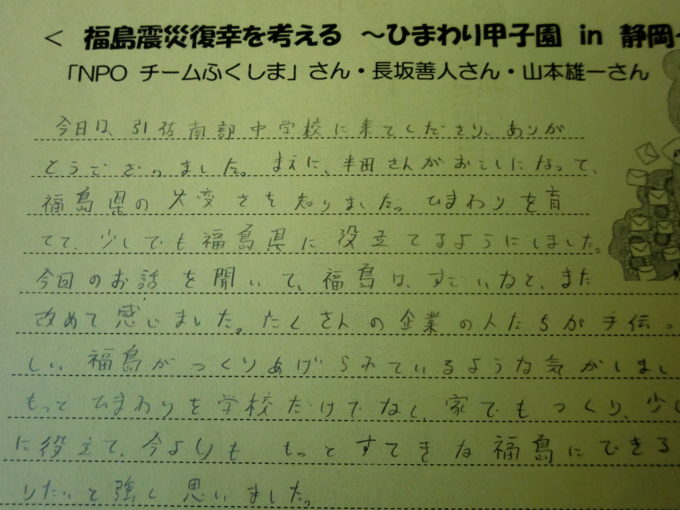 < 福島震災復幸を考える ～ひまわり甲子園 in 静岡～
「NPO チームふくしま」さん・長坂善人さん・山本雄一さん
今日は、引佐南部中学校に来てくださり、ありが
とうございました。まえに、半田さんがおこしになって、
福島県の大変さを知りました。ひまわりを育
てて、少しでも福島県に役立てるようにしました。
今回のお話を聞いて、福島は、すごいねと、また
改めて感じました。たくさんの企業の人たちが手伝っ
しい福島がつくりあげられているような気がしまし
もっとひまわりを学校だけでなく、家でもつくり、少し
に役立て、今よりももっとすてきな福島にできる
りたいと強く思いました。